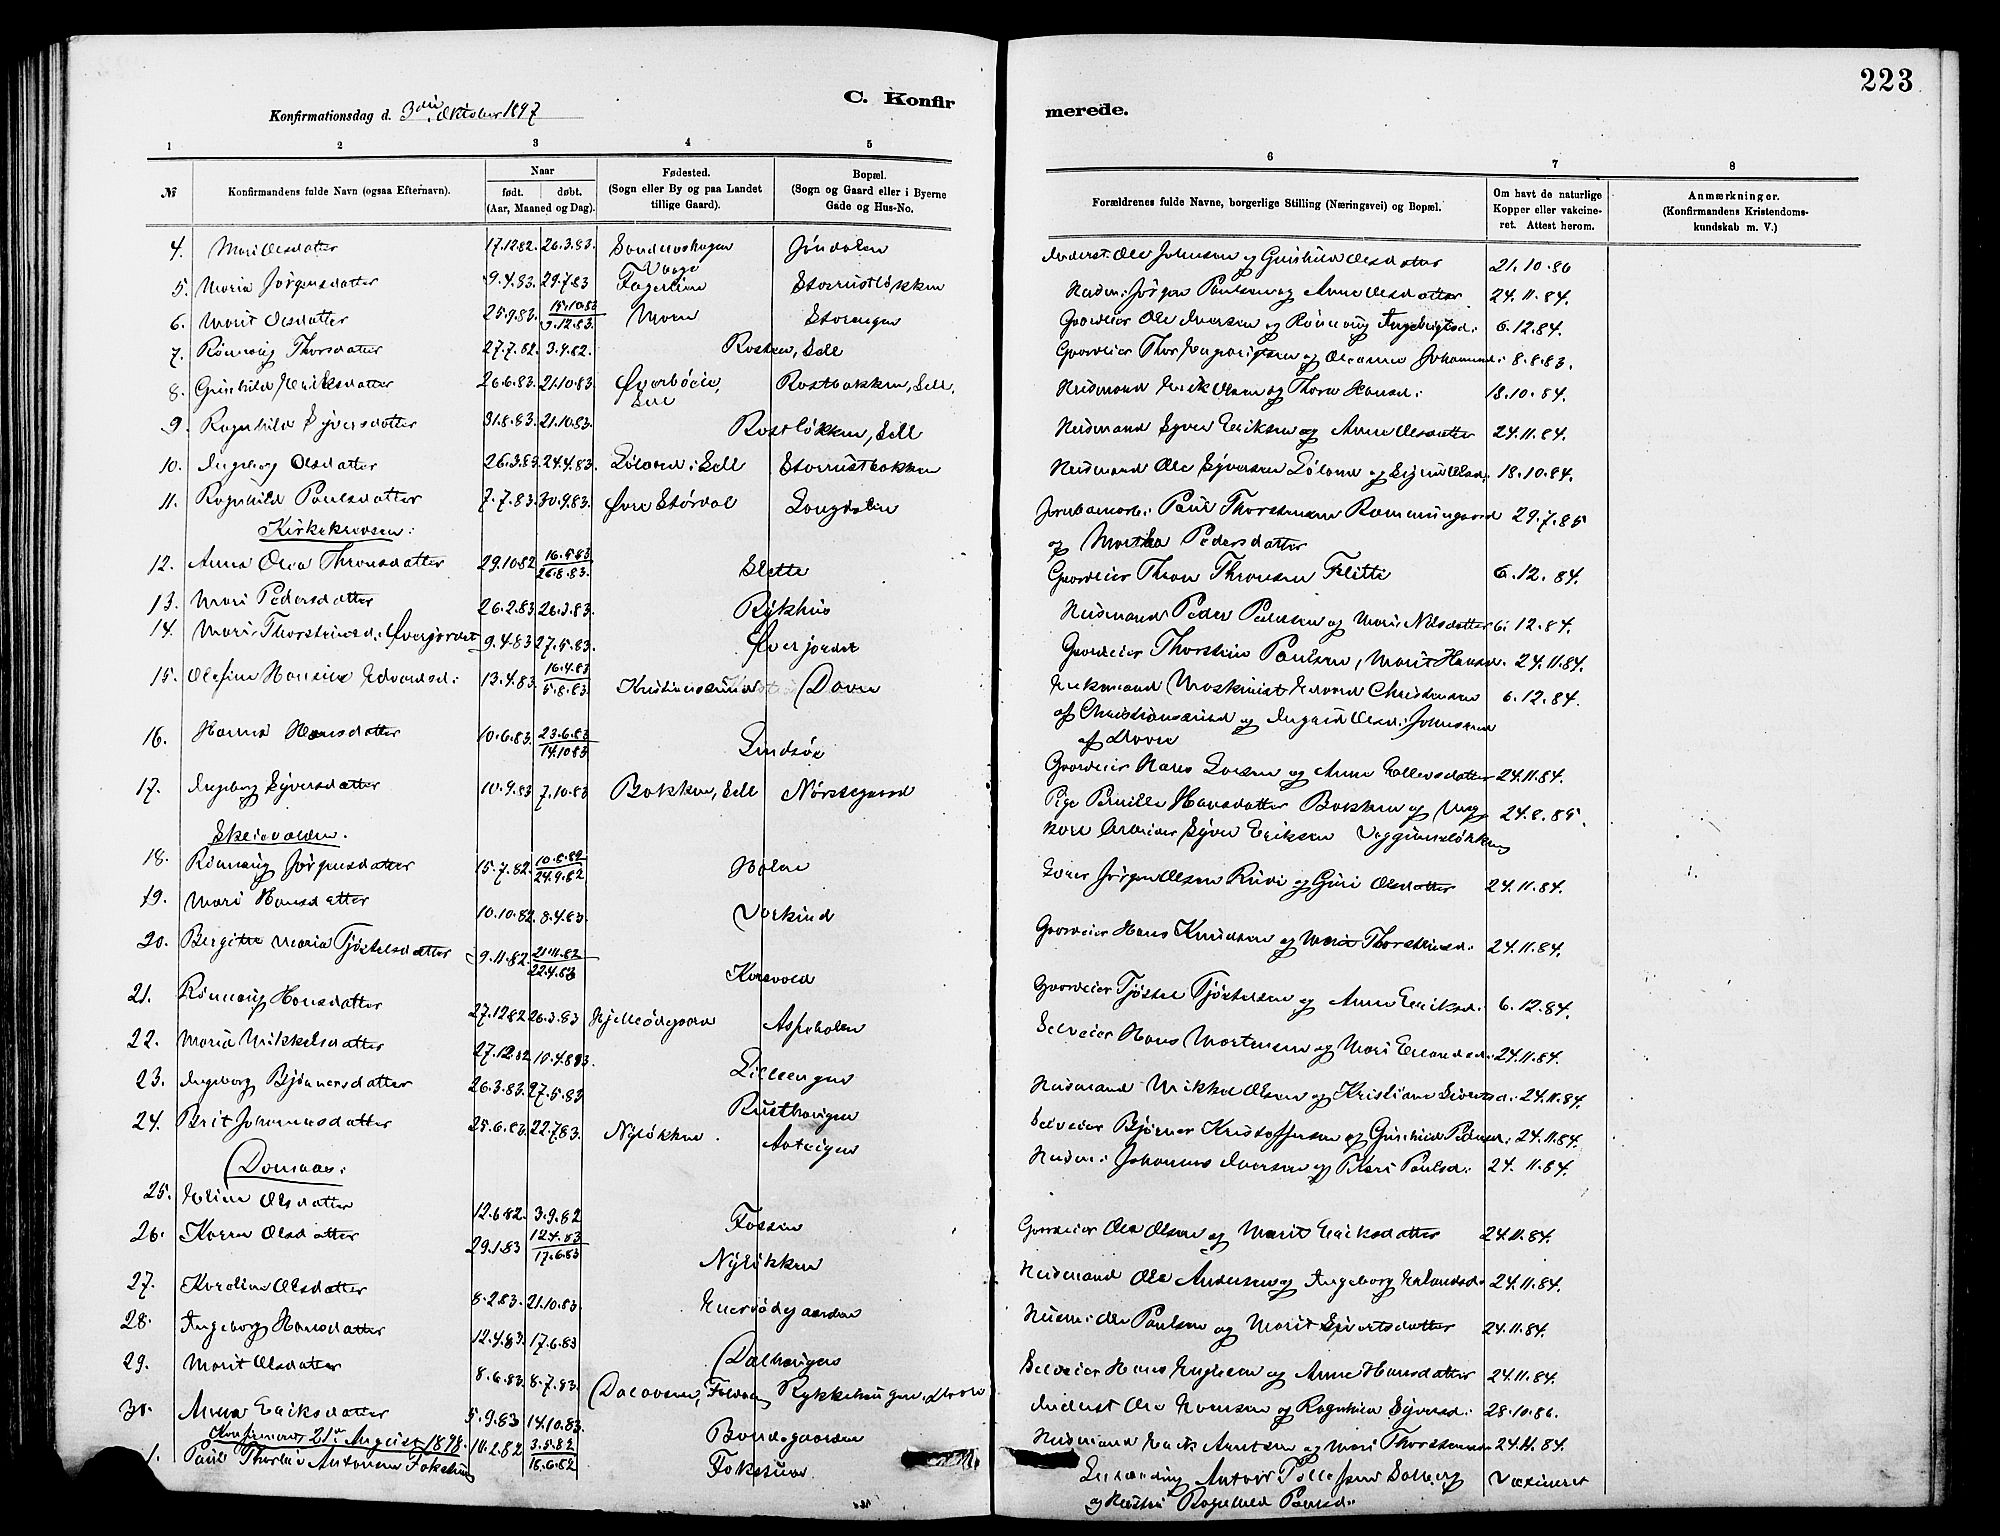 223
C. Konfirmerede.
Konfirmationsdag d. 3die Oktober 1897
1 2 3 4 5 6 7 8
№ Konfirmandens fulde Navn (ogsaa Efternavn). Naar født. døbt. (Aar, Maaned og Dag). Fødested. (Sogn eller By og paa Landet tillige Gaard). Bopæl. (Sogn og Gaard eller i Byerne Gade og Hus-No. Forældrenes fulde Navne, borgerlige Stilling (Næringsvei) og Bopæl. Om havt de naturlige Kopper eller vakcineret. Attest herom. Anmærkninger. (Konfirmandens Kristendomskundskab m. V.)
4. Mari Olsdatter 17.12.82. 26.3.83. Jöndalen Inderst. Ole Johnsen og Gunhild Olsdatter 21.10.86
5. Maria Jörgensdatter 9.4.83. 29.7.83 Vaage Storrustlökken Husm: Jörgen Paulsen og Anne Olsdatter 24.11.84.
6. Marit Olsdatter 25.9.83. 15.10.83 9.12.83. Moen Storengen Gaardeier Ole Iversen og Rönnaug Ingebrigtsd: 6.12.84.
7. Rönnaug Thorsdatter 27.7.82. 3.9.82. Rosten, Sell Gaardeier Thor 8.8.83.
8. Gunhild Eriksdatter 26.6.83. 21.10.83 Överböeie, Sell Rostbakken, Sell, Husmand Erik Olsen og Thora Hansd: 18.10.84.
9. Ragnhild Syversdatter 31.8.83. 21.10.83. Rostlökken, Sell Husmand Syver Eriksen og Anne Olsdatter 24.11.84.
10. Ingeborg Olsdatter 26.3.83. 24.4.83. Storrustbakken Husmand Ole Syversen 18.10.84.
11. Ragnhild Paulsdatter 7.7.83. 30.9.83. Övre Stördal Langdalen Paul Thorstensen Rammungaard 29.7.85
og Martha Pedersdatter
Kirkekredsen:
12. Anna Olea Thronsdatter 29.10.82 16.5.83 26.8.83. Slette Gaardeier Thron Thronsen 6.12.84.
13. Mari Pedersdatter 26.2.83. 26.3.83. Rykhus Husmand Peder Pedersen og Mari Nilsdatter 6.12.84.
14. Mari Thorsteinsd: Överjordet 9.4.83 27.5.83. Överjordet Gaardeier Thorstein Paulsen, Marit Hansd. 24.11.84.
15. Olefine Hansine Edvardsd: 13.4.83. 16.4.83 5.8.83 Kristianssund Dovre Enkemand Maskinist Edvard Christensen 6.12.84.
af Christianssund og Ingrid Olsd: Johnsrud
af Dovre
16. Hanna Hansdatter 10.6.83. 23.6.83 14.10.83 Lindsöe Gaardeier Hans Larsen og Anne Ellevsdatter 24.11.84.
17. Ingeborg Syversdatter 10.9.83 7.10.83 Bakken, Sell Nörstegaard Pige Pernille Hansdatter Bakken og Ung- 24.8.85.
karl Arbeider Syver Eriksen
Skeievolden.
18. Rönnaug Jörgensdatter 15.7.82. 10.8.82 24.9.82 Holen Jörgen Olsen Rudi og Guri Olsdatter 24.11.84.
19. Mari Hansdatter 10.10.82. 8.4.83. Vorkind Gaardeier Hans Knudsen og Mari Thorsteinsd: 24.11.84.
20. Bergitte Maria Tjöstelsdatter 9.11.82. 21.11.82 22.4.83 Korsvold Gaardeier Tjöstel Tjöstelsen og Anne Eriksd: 6.12.84.
21. Rönnaug Hansdatter 27.12.82 26.3.83 Hjelleödegaard Aspeholen Selveier Hans Mortensen og Mari Erlandsd: 24.11.84.
22. Maria Mikkelsdatter 27.12.82 10.4.83. Lilleengen Husmand Mikkel Olsen og Kristiane Sivertsd: 24.11.84.
23. Ingeborg Björnersdatter 26.3.83. 27.5.83 Rusthaugen Selveier Björner Kristoffersen og Gunhild Pedersd: 24.11.84.
24. Brit Johannesdatter 25.6.83. 22.7.83. Nylökken Husm: Johannes Iversen og Kari Paulsd: 24.11.84.
Domaas:
25. Eline Olsdatter 12.6.82. 3.9.82 Fossen Gaardeier Ole Olsen og Marit Eriksdatter 24.11.84.
26. Karen Olsdatter 29.1.83 12.4.83 17.6.83 Nylökken Husmand Ole Andersen og Ingeborg Erlandsd. 24.11.84.
27. Karoline Olsdatter 8.2.83. 21.10.83. Husm: Ole Paulsen og Marit Syvertsdatter 24.11.84.
28. Ingeborg Hansdatter 12.4.83. 17.6.83 Dalhaugen Selveier Hans Engelsen og Anne Hansdatter 24.11.84.
29. Marit Olsdatter 8.6.83. 8.7.83. Rykkehaugen, Dovre Inderst Ole Hansen og Ragnhild Syversd: 28.10.86.
30. Anna Eriksdatter 5.9.83 14.10.83. Bondegaarden Husmand Erik Arntsen og Mari Thorsteinsd. 24.11.84.
Konfirmerede 21de August 1898.
1. Paul Thorleiv Antonsen Fokstuen 10.2.82 3.5.82 18.6.82 Fokstuen Anton Solberg Vaxineret
og Hustru Ragnhild Paulsd: